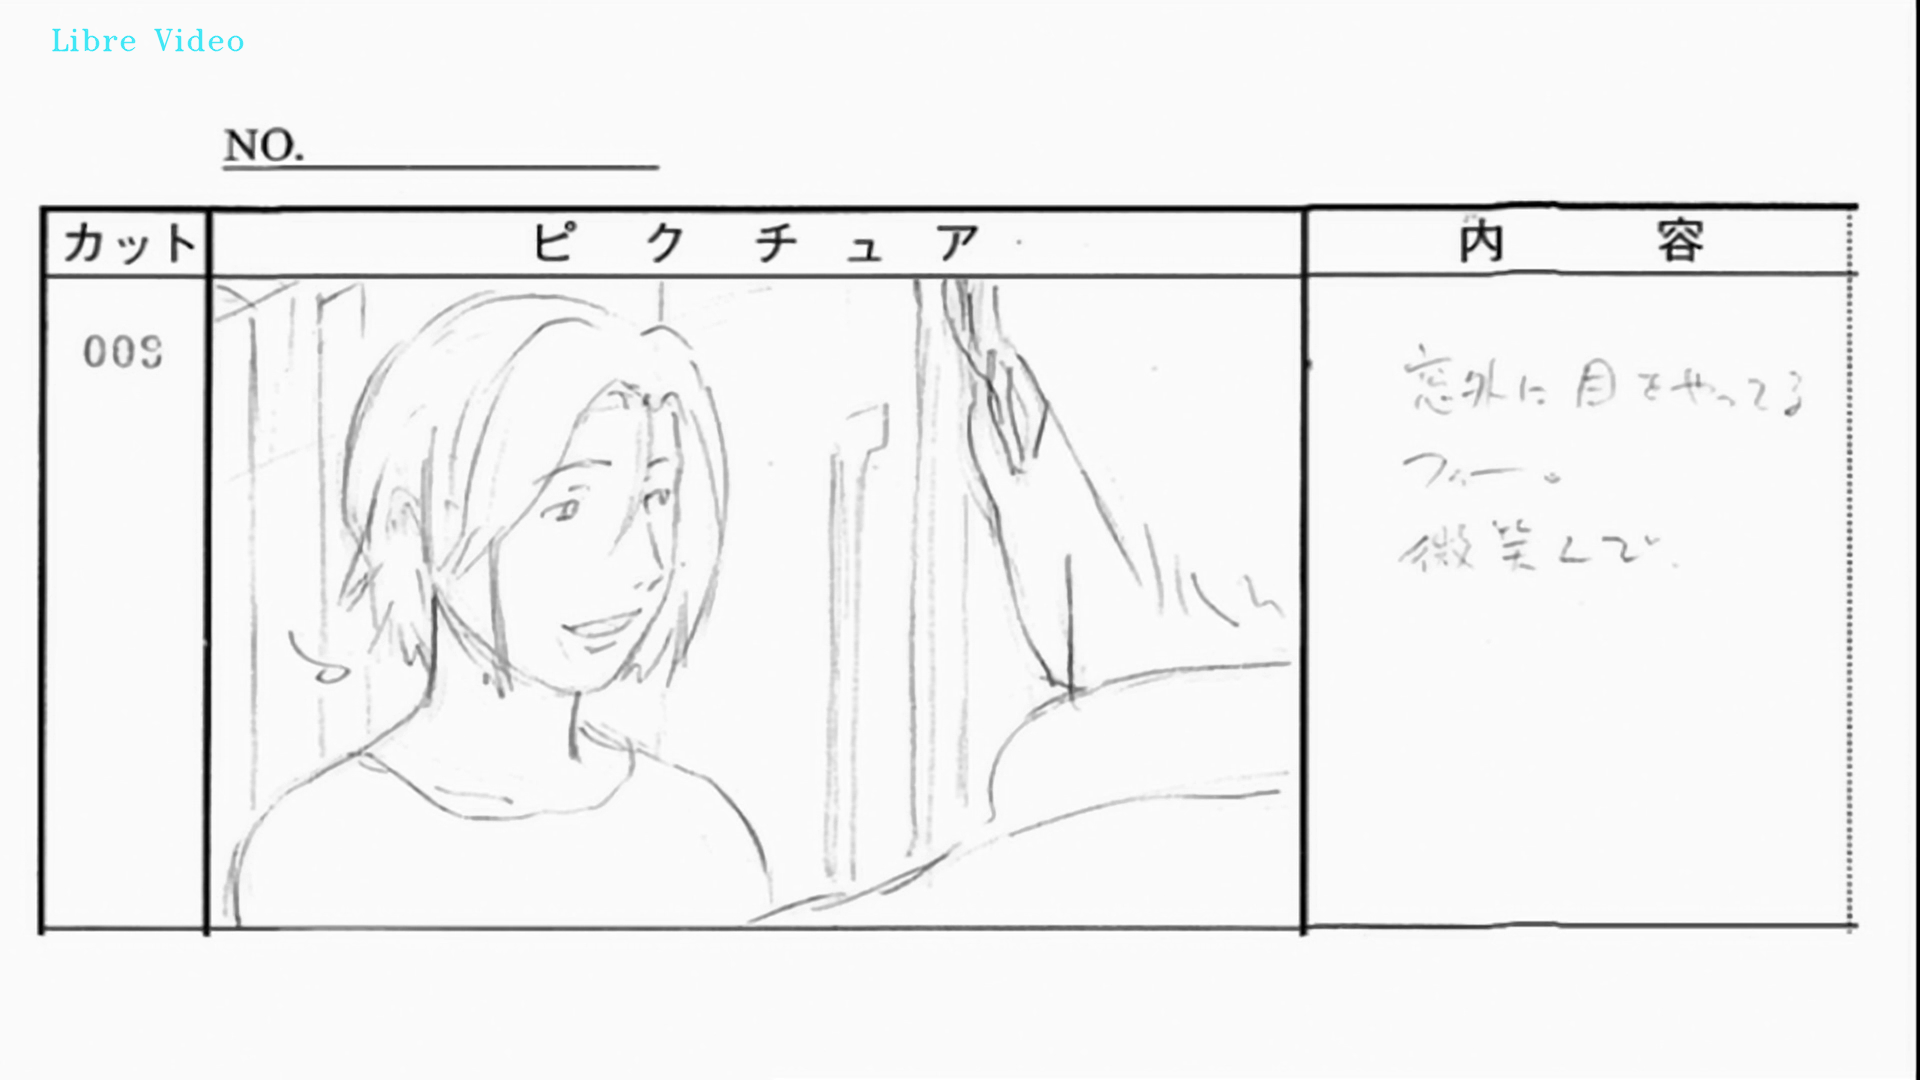 Libre Video
NO.
カット ピクチュア 内容
009
窓外に目をやってる
フィー。
微笑んで